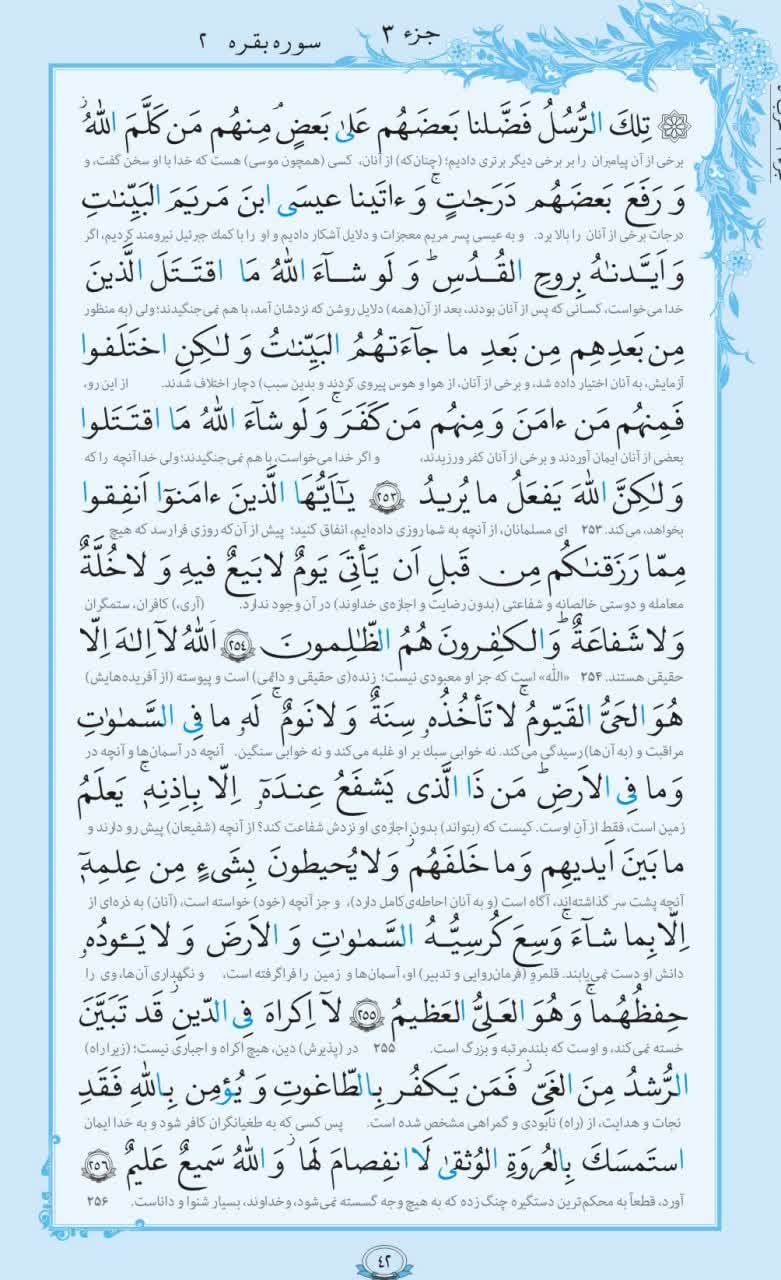 جزء ۳
سوره بقره ۲
تِلكَ الرُّسُلُ فَضَّلنا بَعضَهُم عَلىٰ بَعضٍ ۘ مِنهُم مَن كَلَّمَ اللّٰهُ ۖ
برخی از آن پیامبران را بر برخی دیگر برتری دادیم؛ (چنان‌که) از آنان، کسی (همچون موسی) هست که خدا با او سخن گفت، و
وَ رَفَعَ بَعضَهُم دَرَجاتٍ ۚ وَ ءاتَينا عيسَى ابنَ مَريَمَ البَيِّنٰتِ
درجات برخی از آنان را بالا برد. و به عیسی پسر مریم معجزات و دلایل آشکار دادیم و او را با کمك جبرئیل نیرومند کردیم، اگر
وَ اَيَّدنٰهُ بِروحِ القُدُسِ ؕ وَ لَو شاءَ اللّٰهُ مَا اقتَتَلَ الَّذينَ
خدا می‌خواست، کسانی که پس از آنان بودند، بعد از آن (همه) دلایل روشن که نزدشان آمد، با هم نمی‌جنگیدند؛ ولی (به منظور
مِن بَعدِهِم مِن بَعدِ ما جاءَتهُمُ البَيِّنٰتُ وَ لٰكِنِ اختَلَفوا
آزمایش، به آنان اختیار داده شد، و برخی از آنان، از هوا و هوس پیروی کردند و بدین سبب) دچار اختلاف شدند. از این رو،
فَمِنهُم مَن ءامَنَ وَ مِنهُم مَن كَفَرَ ۚ وَ لَو شاءَ اللّٰهُ مَا اقتَتَلوا
بعضی از آنان ایمان آوردند و برخی از آنان کفر ورزیدند، و اگر خدا می‌خواست، با هم نمی‌جنگیدند؛ ولی خدا آنچه را که
وَ لٰكِنَّ اللّٰهَ يَفعَلُ ما يُريدُ ﴿۲۵۳﴾ يٰاَيُّهَا الَّذينَ ءامَنوا اَنفِقوا
بخواهد، می‌کند. ۲۵۳ ای مسلمانان، از آنچه به شما روزی داده‌ایم، انفاق کنید؛ پیش از آن‌که روزی فرا رسد که هیچ
مِمّا رَزَقنٰكُم مِن قَبلِ اَن يَأتِىَ يَومٌ لا بَيعٌ فيهِ وَ لا خُلَّةٌ
معامله و دوستی خالصانه و شفاعتی (بدون رضایت و اجازه‌ی خداوند) در آن وجود ندارد. (آری،) کافران، ستمگران
وَ لا شَفاعَةٌ ؕ وَ الكٰفِرونَ هُمُ الظّٰلِمونَ ﴿۲۵۴﴾ اَللّٰهُ لا اِلٰهَ اِلّا
حقیقی هستند. ۲۵۴ «الله» است که جز او معبودی نیست؛ زنده‌(ی حقیقی و دائمی) است و پیوسته (از آفریده‌هایش)
هُوَ الحَىُّ القَيّومُ ۚ لا تَأخُذُهُ سِنَةٌ وَ لا نَومٌ ۚ لَهُ ما فِى السَّمٰوٰتِ
مراقبت و (به آن‌ها) رسیدگی می‌کند. نه خوابی سبك بر او غلبه می‌کند و نه خوابی سنگین. آنچه در آسمان‌ها و آنچه در
وَ ما فِى الاَرضِ ؕ مَن ذَا الَّذى يَشفَعُ عِندَهُ اِلّا بِاِذنِهِ ۚ يَعلَمُ
زمین است، فقط از آنِ اوست. کیست که (بتواند) بدون اجازه‌ی او نزدش شفاعت کند؟ از آنچه (شفیعان) پیش رو دارند و
ما بَينَ اَيديهِم وَ ما خَلفَهُم ۖ وَ لا يُحيطونَ بِشَىءٍ مِن عِلمِهِ
آنچه پشت سر گذاشته‌اند، آگاه است (و به آنان احاطه‌ی کامل دارد)، و جز آنچه (خود) خواسته است، (آنان) به ذره‌ای از
اِلّا بِما شاءَ ۚ وَسِعَ كُرسِيُّهُ السَّمٰوٰتِ وَ الاَرضَ وَ لا يَئودُهُ
دانش او دست نمی‌یابند. قلمروِ (فرمان‌روایی و تدبیر) او، آسمان‌ها و زمین را فراگرفته است، و نگهداری آن‌ها، وی را
حِفظُهُما ۚ وَ هُوَ العَلِىُّ العَظيمُ ﴿۲۵۵﴾ لا اِكراهَ فِى الدّينِ ۖ قَد تَبَيَّنَ
خسته نمی‌کند، و اوست که بلندمرتبه و بزرگ است. ۲۵۵ در (پذیرش) دین، هیچ اکراه و اجباری نیست؛ (زیرا راه)
الرُّشدُ مِنَ الغَىِّ ۚ فَمَن يَكفُر بِالطّاغوتِ وَ يُؤمِن بِاللّٰهِ فَقَدِ
نجات و هدایت، از (راه) نابودی و گمراهی مشخص شده است. پس کسی که به طغیانگران کافر شود و به خدا ایمان
استَمسَكَ بِالعُروَةِ الوُثقىٰ لَا انفِصامَ لَها ۗ وَ اللّٰهُ سَميعٌ عَليمٌ ﴿۲۵۶﴾
آورد، قطعاً به محکم‌ترین دستگیره چنگ زده که به هیچ وجه گسسته نمی‌شود، وخداوند، بسیار شنوا و داناست. ۲۵۶
۴۲